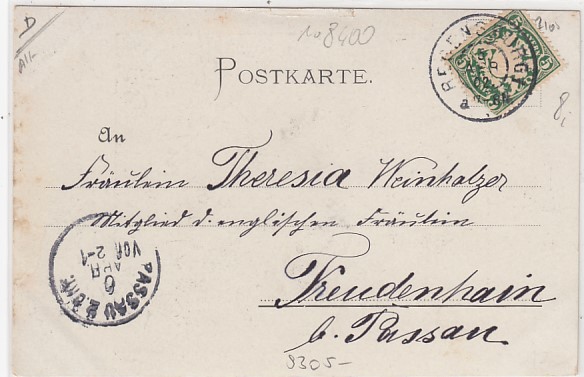 D
No 8400
POSTKARTE.
REGENSBURG
5
An
Fräulein Theresia Weinholzer
Mitglied d. englischen Fräulein
Freudenhain
b. Passau
PASSAU 2. B.HF.
6
APR
VOR. 2-1
9305-